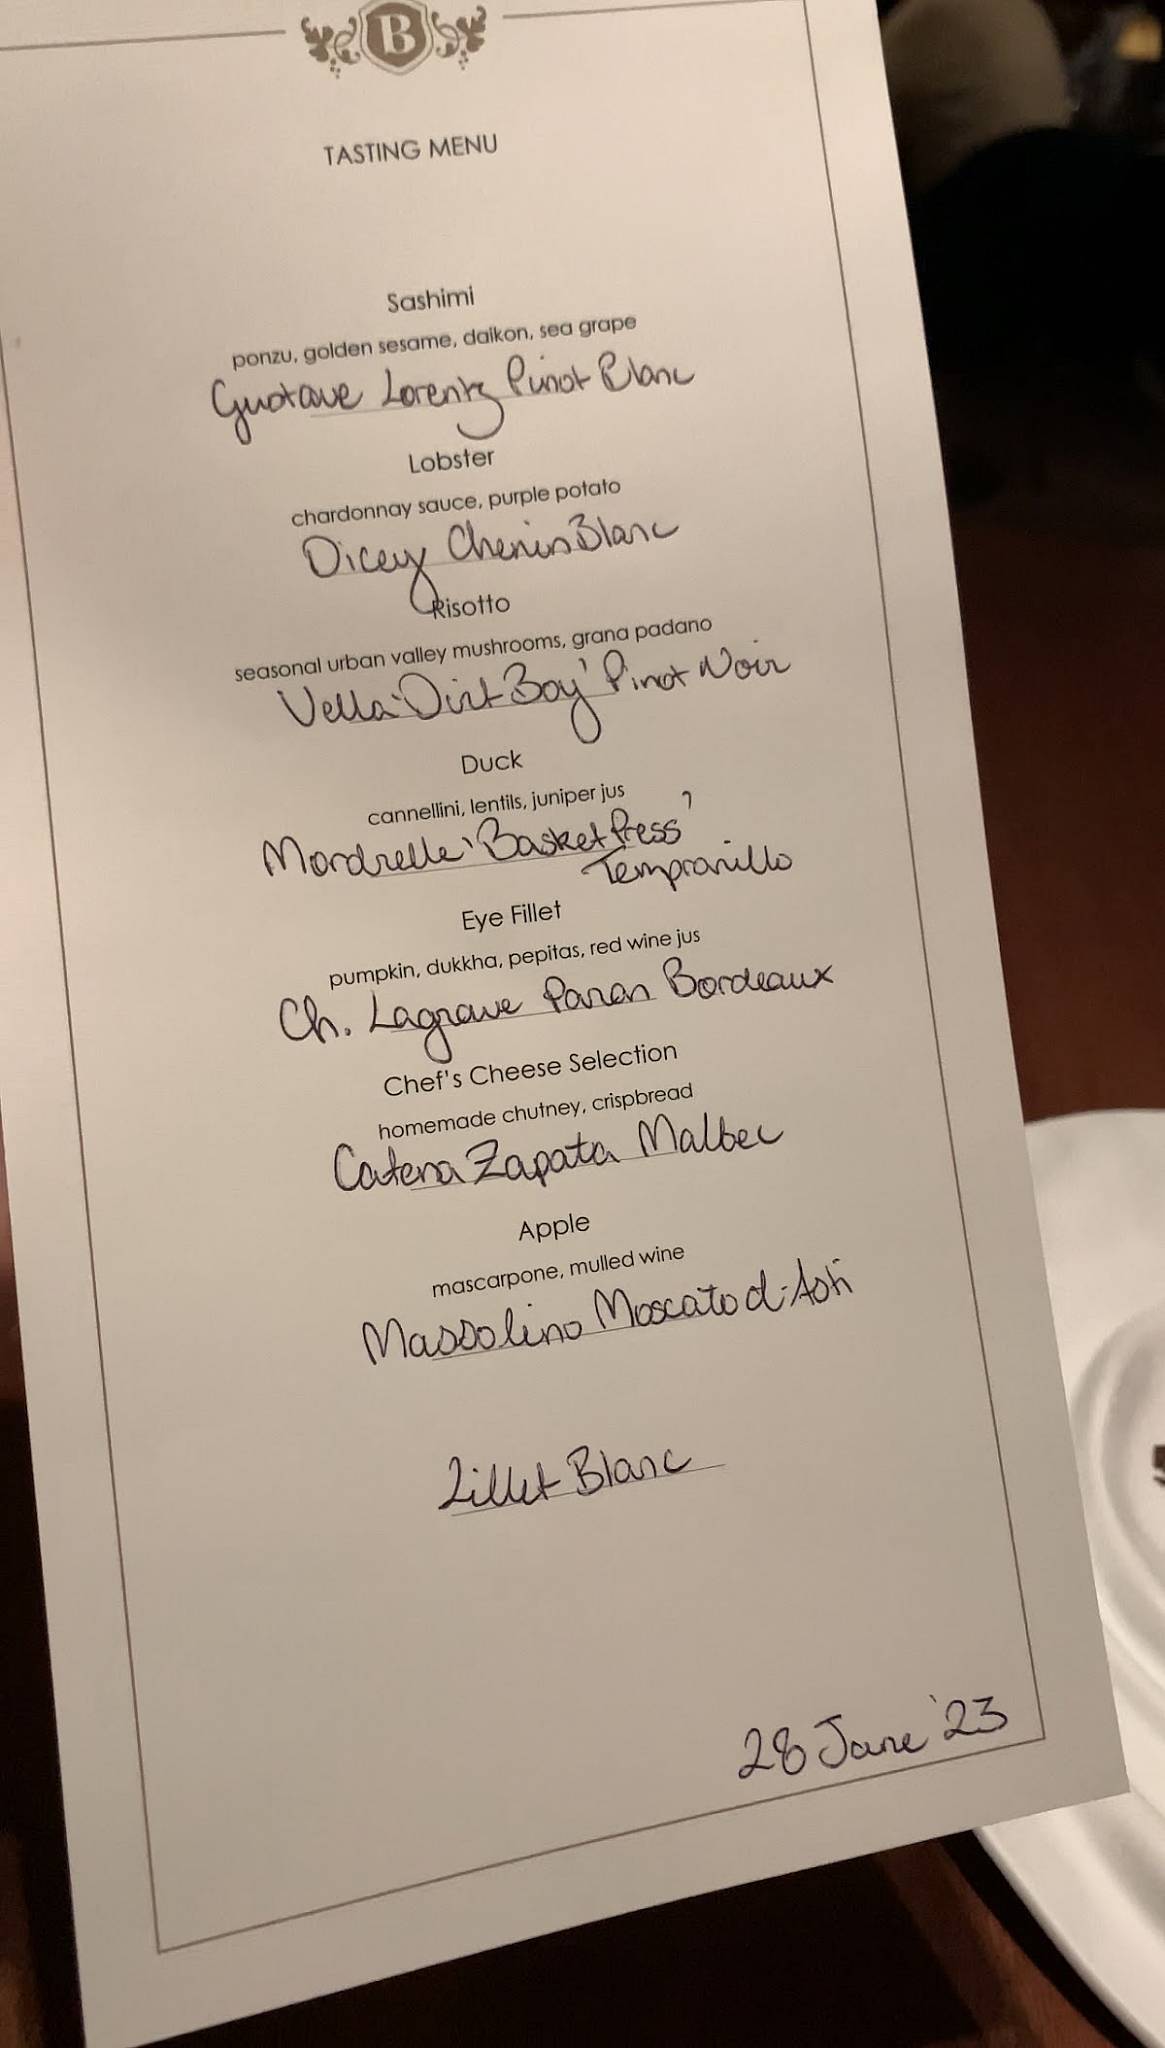 B
TASTING MENU
Sashimi
ponzu, golden sesame, daikon, sea grape
Gustave Lorentz Pinot Blanc
Lobster
chardonnay sauce, purple potato
Dicey Chenin Blanc
Risotto
seasonal urban valley mushrooms, grana padano
Vella 'Dirt Boy' Pinot Noir
Duck
cannellini, lentils, juniper jus
Mordrelle 'Basket Press'
Tempranillo
Eye Fillet
pumpkin, dukkha, pepitas, red wine jus
Ch. Lagrave Paran Bordeaux
Chef's Cheese Selection
homemade chutney, crispbread
Catena Zapata Malbec
Apple
mascarpone, mulled wine
Massolino Moscato d'Asti
Lillet Blanc
28 June '23